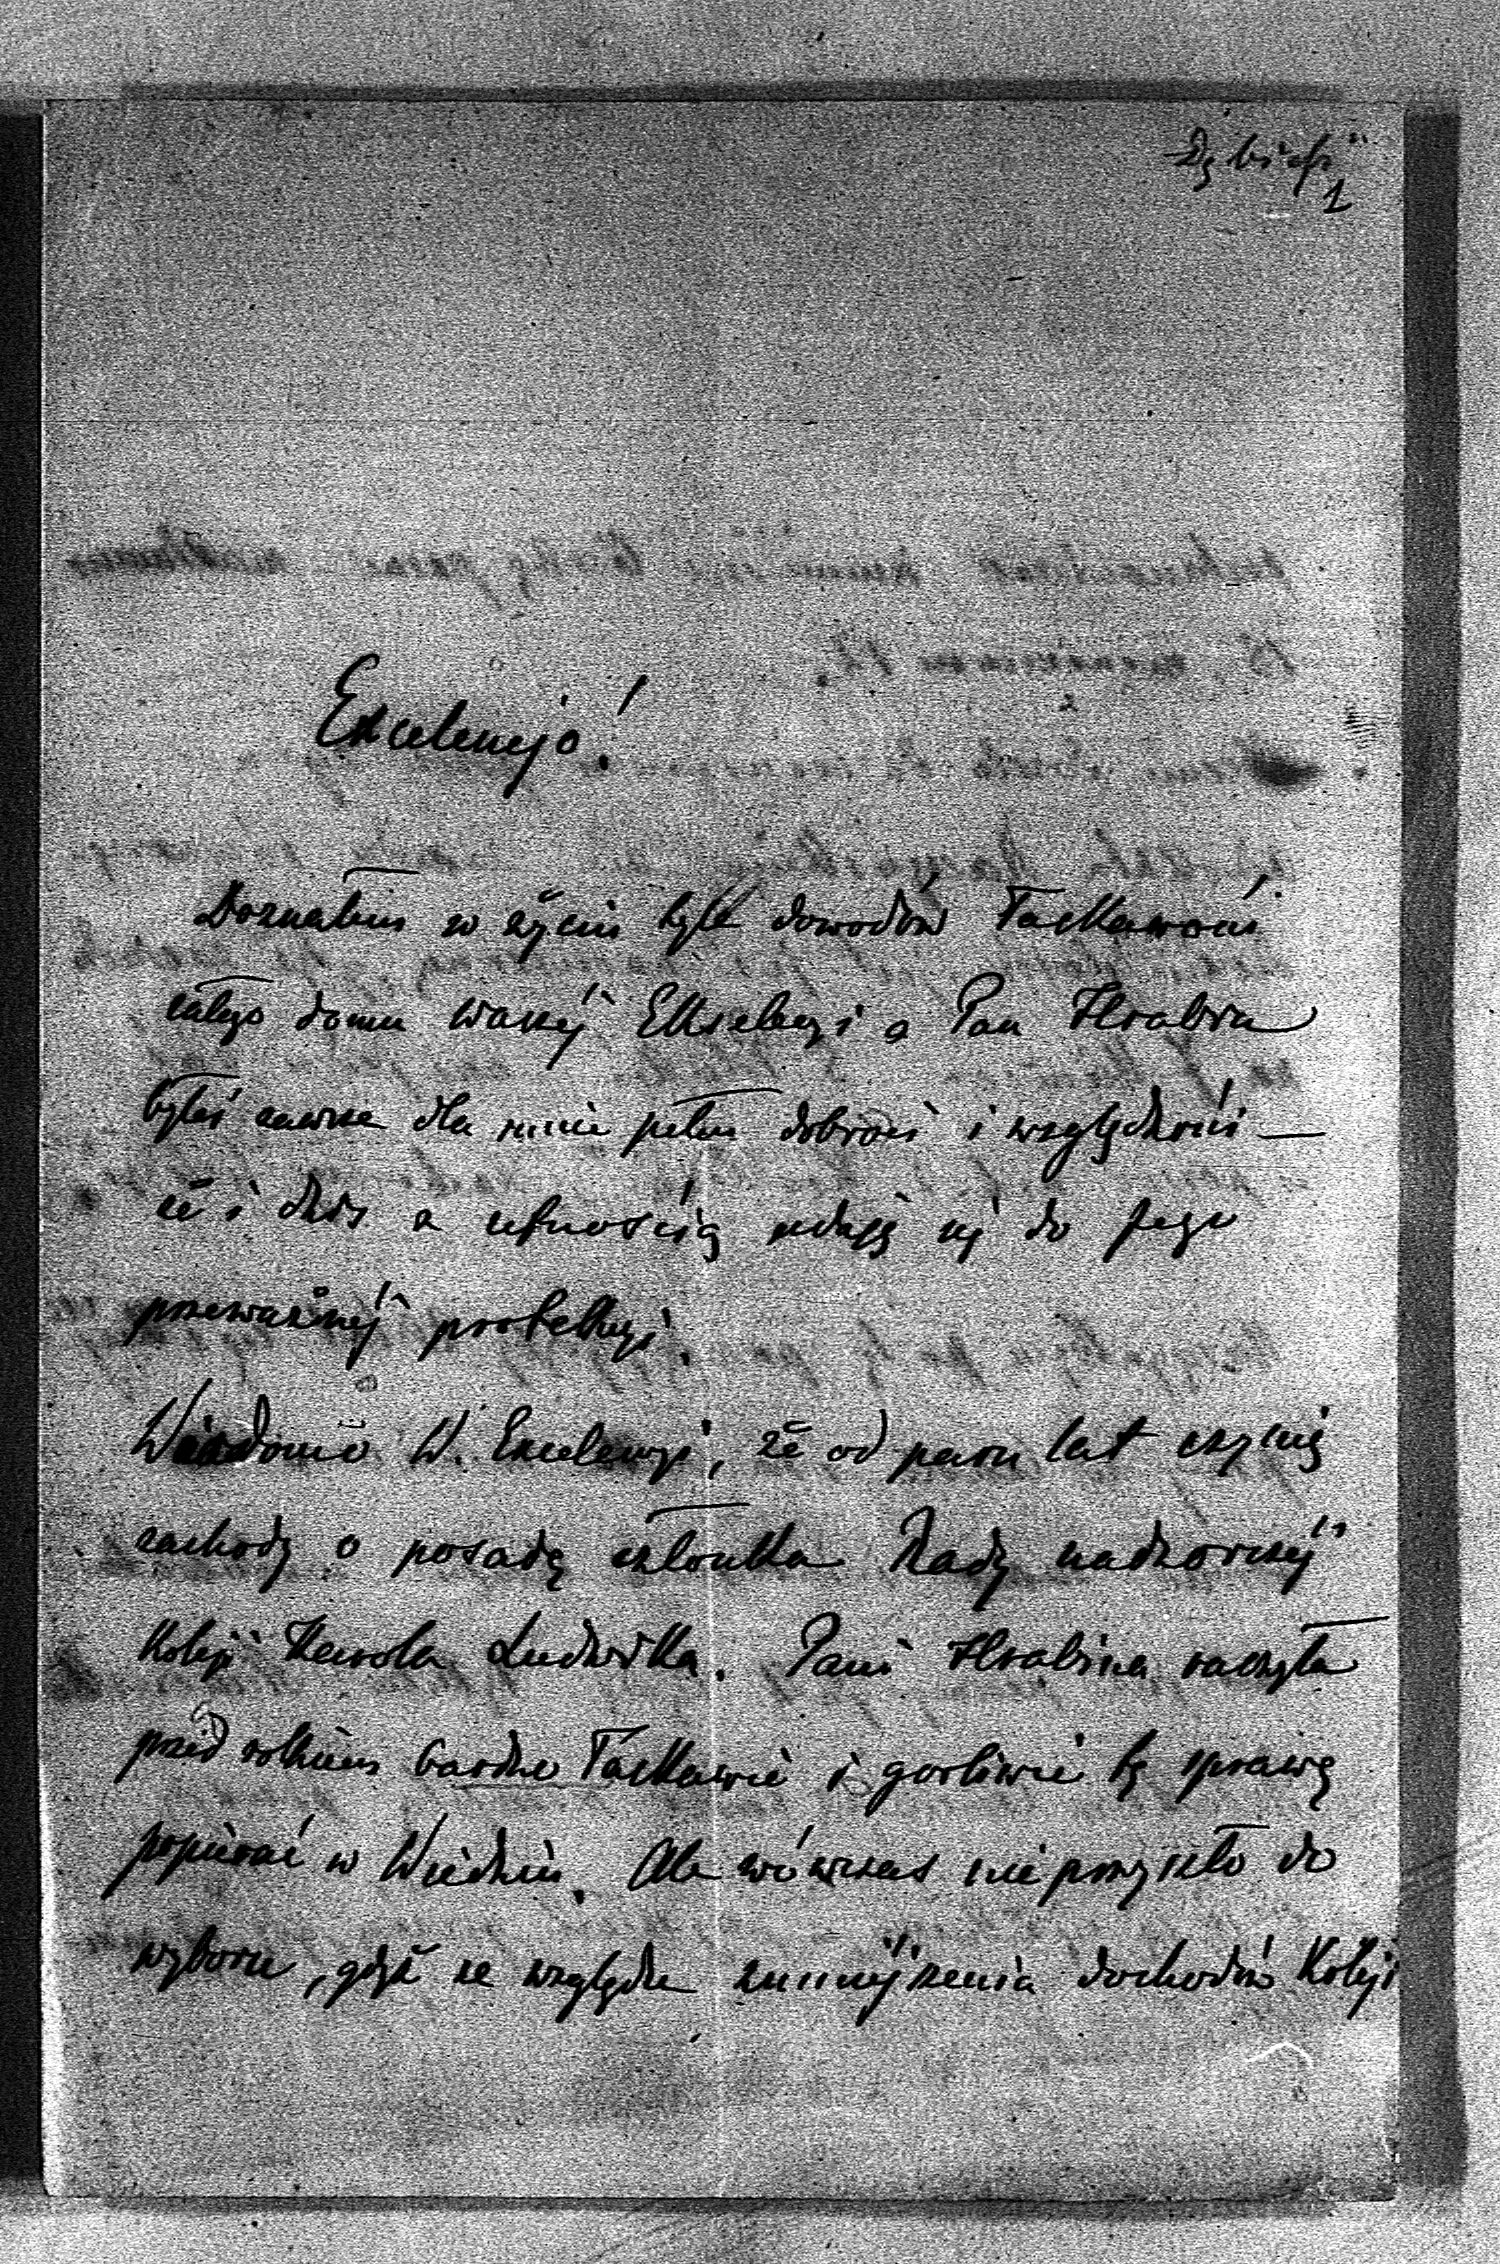 1
Excelencjo!
Doznałem w życiu tyle dowodów łaskawości
całego domu waszéj Ekscelencyi a Pan Hrabia
byłeś zawsze dla mnie pełen dobroci i względności —
że i dziś z ufnością udaję się do Jego
przeważnéj protekcyi.
Wiadomo W. Excelencyi, że od paru lat czynię
zachody o posadę członka Rady nadzorczéj
Koleji Karola Ludwika. Pani Hrabina raczyła
przed rokiem bardzo łaskawie i gorliwie tę sprawę
popierać w Wiedniu. Ale wówczas nie przyszło do
wyboru, gdyż ze względu zmniéjszenia dochodów Koleji